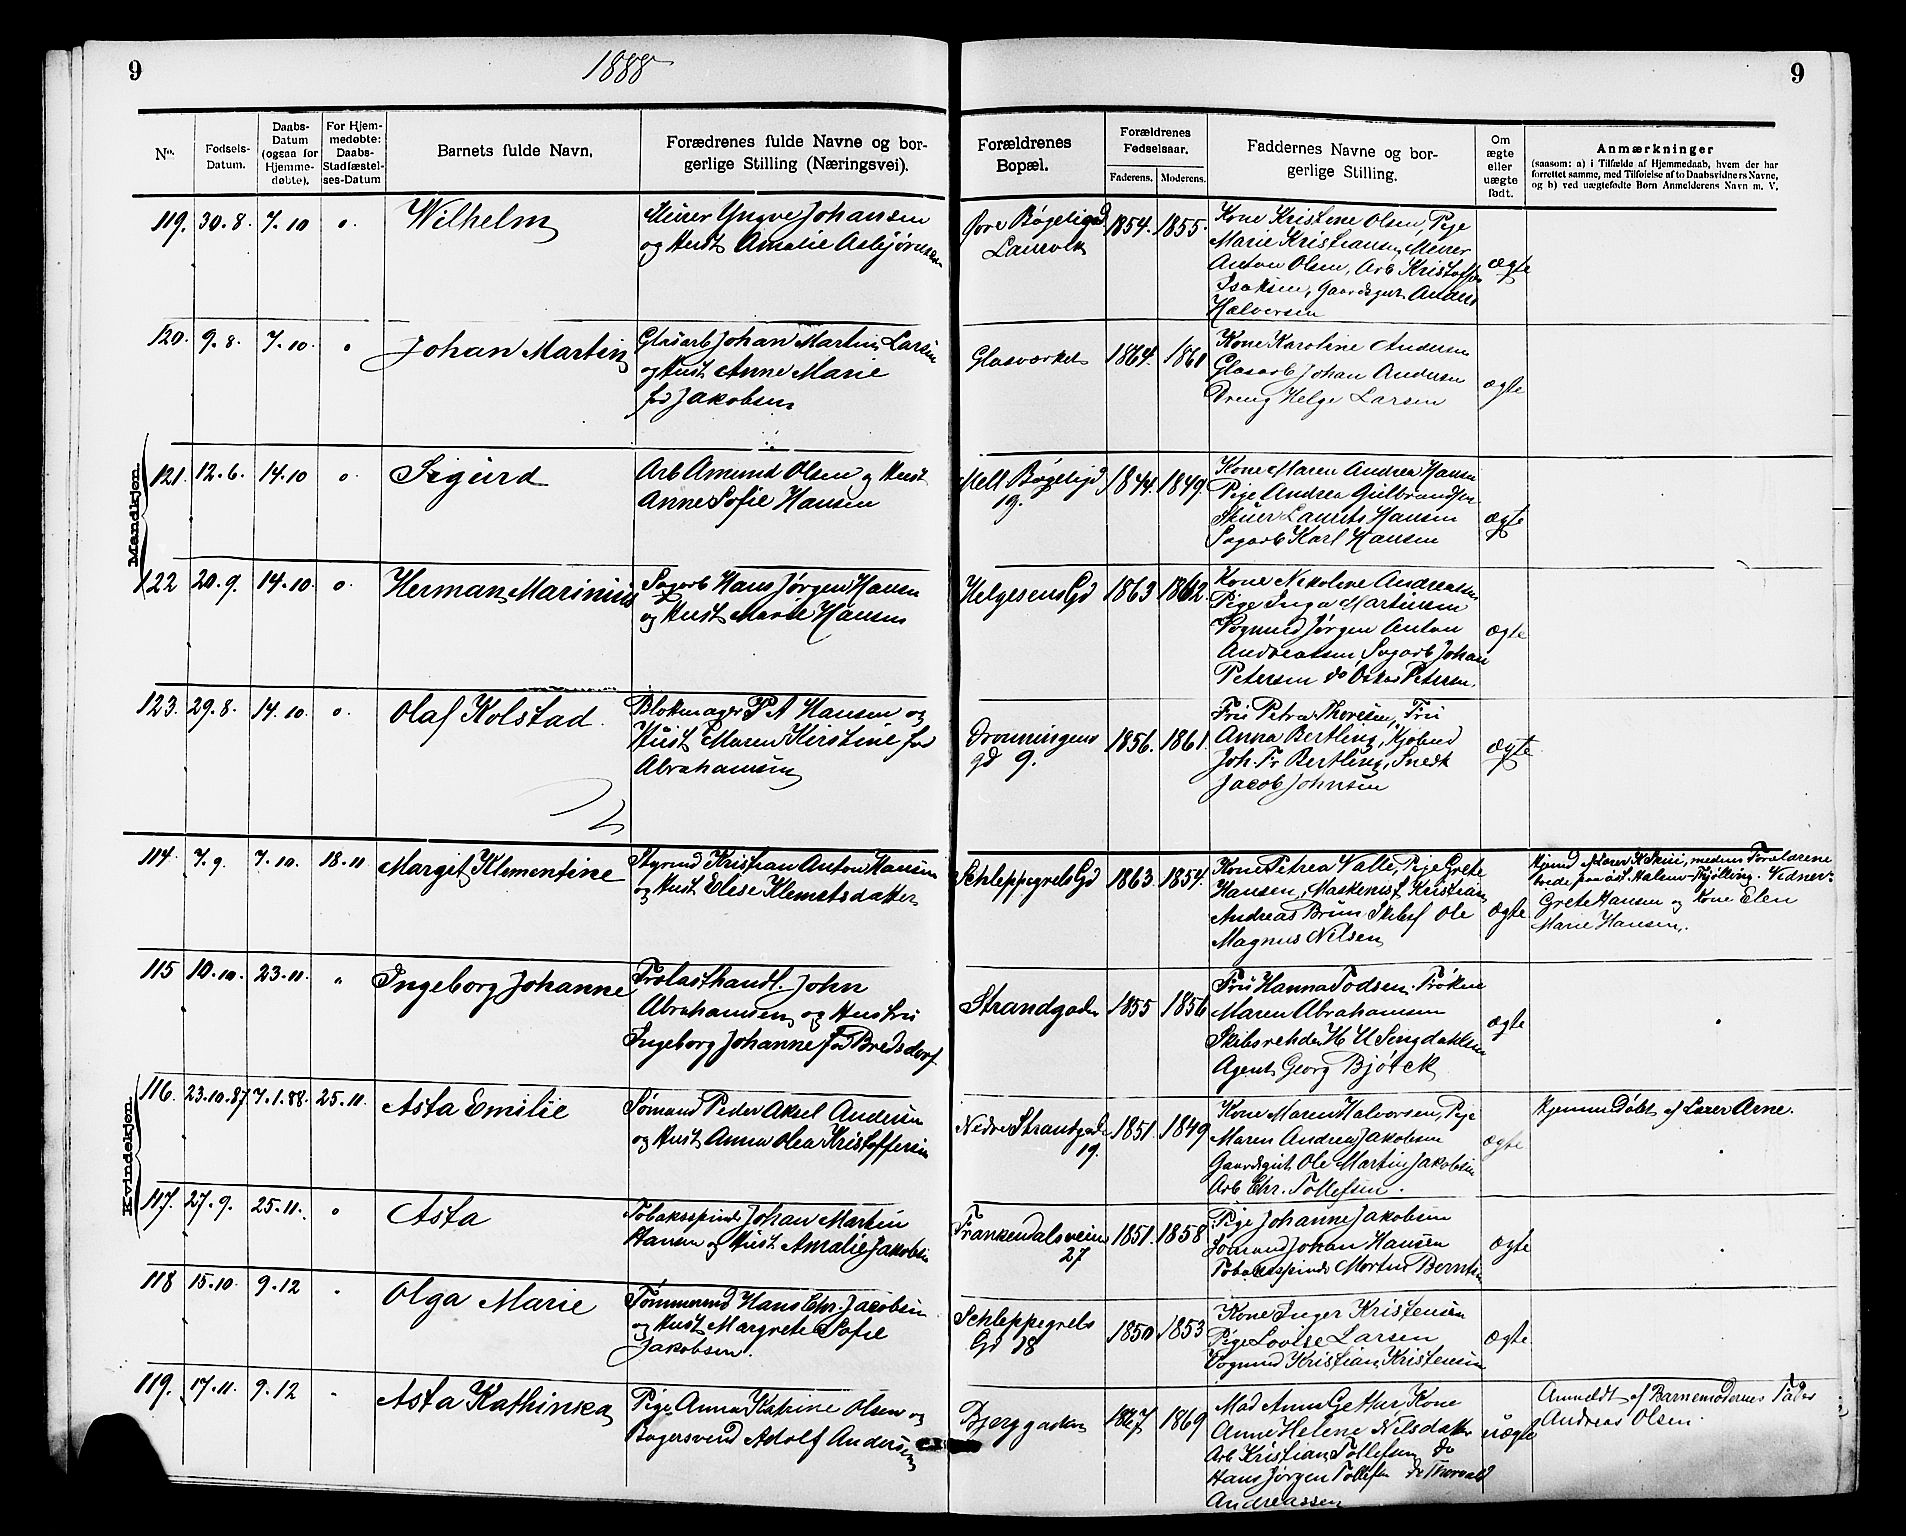 9
1888
9
No.
Fødsels-
Datum.
Daabs-
Datum
(ogsaa for
Hjemme-
døbte).
For Hjem-
medøbte:
Daabs-
Stadfæstel-
ses-Datum
Barnets fulde Navn,
Forædrenes fulde Navne og bor-
gerlige Stilling (Næringsvei).
Forældrenes
Bopæl.
Forældrenes
Fødselsaar.
Faderens.
Moderens.
Faddernes Navne og bor-
gerlige Stilling.
Om
ægte
eller
uægte
født.
Anmærkninger
(saasom: a) i Tilfælde af Hjemmedaab, hvem der har
forrettet samme, med Tilføielse af to Daabsvidners Navne,
og b) ved uægtefødte Børn Anmelderens Navn m. V.
Mandkjøn.
119. 30.8. 7.10 " Wilhelm
Murer Yngve Johansen
og Hust Amalie Asbjørnsen
Øvre Bøgeligd
Laurvik
1854. 1855.
Kone Kristene Olsen, Pige
Marie Kristiansen, Murer
Anton Olsen, Arb Kristoffer
Isaksen, Gaardsgut Anders
Halvorsen
ægte
120. 9.8. 7.10. " Johan Martin
Glasarb Johan Martin Larsen
og Hust Anne Marie
fød Jakobsen
Glasværket 1864. 1861
Kone Karoline Andersen
Glasarb Johan Andersen
Dreng Helge Larsen
ægte
121. 12.6. 14.10 " Sigurd
Arb Amund Olsen og Hust
Anne Sofie Hansen
Mell Bøgeligd
19.
1844. 1849.
Kone Maren Andrea Hansen
Pige Andrea Gulbrandsen
Skuer Laurits Hansen
Sagarb Karl Hansen
ægte
122 20.9. 14.10. " Herman Marinius
Sagarb Hans Jørgen Hansen
og Hust Marie Hansen
Helgesens Gd 1863 1862.
Kone Nikoline Andreassen
Pige Inga Martinsen
Vognmd Jørgen Anton
Andreassen, Sagarb Johan
Petersen do Oskar Petersen.
ægte
123. 29.8. 14.10. " Olaf Kolstad.
Blokmager P A Hansen og
Hust Maren Kirstine fød
Abrahamsen
Dronningens
gd 9.
1856. 1861.
Fru Petra Thoresen, Fru
Anna Bertling, Kjøbmd
Joh. Fr Bertling, Snedk
Jacob Johnsen
ægte
Kvindekjøn.
114. 7.9. 7.10. 18.11 Margit Klementine
Styrmd Kristian Anton Hansen
og Hust Elese Klemetsdatter
Schleppegrels Gd 1863. 1854.
Kone Petrea Valle, Pige Grete
Hansen, Maskenist Kristian
Andreas Brun Skibsf Ole
Magnus Nilsen
ægte
medens Forældrene
Vidner:
Grete Hansen og Kone Elen
Marie Hansen.
115 10.10. 23.11. " Ingeborg Johanne
Trælasthandl. John
Abrahamsen og Hustru
Ingeborg Johanne fød Bredsdorf
Strandgaden 1855 1856
Fru Hanna Todsen. Frøken
Maren Abrahamsen
Skibsrehder H U Sengdahlsen
Agent Georg Bjørck
ægte
116. 23.10.87 7.1.88. 25.11. Asta Emilie
Sømand Peder Aksel Andersen
og Hust Anna Olea Kristoffersen
Nedre Strandgade
19.
1851. 1849
Kone Maren Halvorsen, Pige
Maren Andrea Jakobsen
Gaardsgut Ole Martin Jakobsen
Arb Chr. Tollefsen.
ægte
Hjemmedøbt af Lærer Arne.
117. 27.9. 25.11. " Asta
Tobaksspinder Johan Martin
Hansen og Hust. Amalie Jakobsen
Frankendalsveien
27
1851. 1858
Pige Johanne Jakobsen
Sømand Johan Hansen
Tobaksspinder Morten Berntsen
ægte
118 15.10. 9.12 " Olga Marie
Tømmermd Hans Chr. Jacobsen
og Hust Margrete Sofie
Jakobsen.
Schleppegrels
Gd 18
1850 1853
Kone Inger Kristensen
Pige Lovise Larsen
Vognmd Kristian Kristensen
ægte
119. 17.11. 9.12 " Asta Kathinka
Pige Anna Katrine Olsen og
Bagersvend Adolf Andersen
Bjerggaden 1867. 1869
Mad Anne Gether Kone
Anne Helene Nilsdatter
Arb Kristian Tollefsen do
Hans Jørgen Tollefsen do Thorvald
Andreassen
uægte
Anmeldt af Barnemoderens Fader
Andreas Olsen.